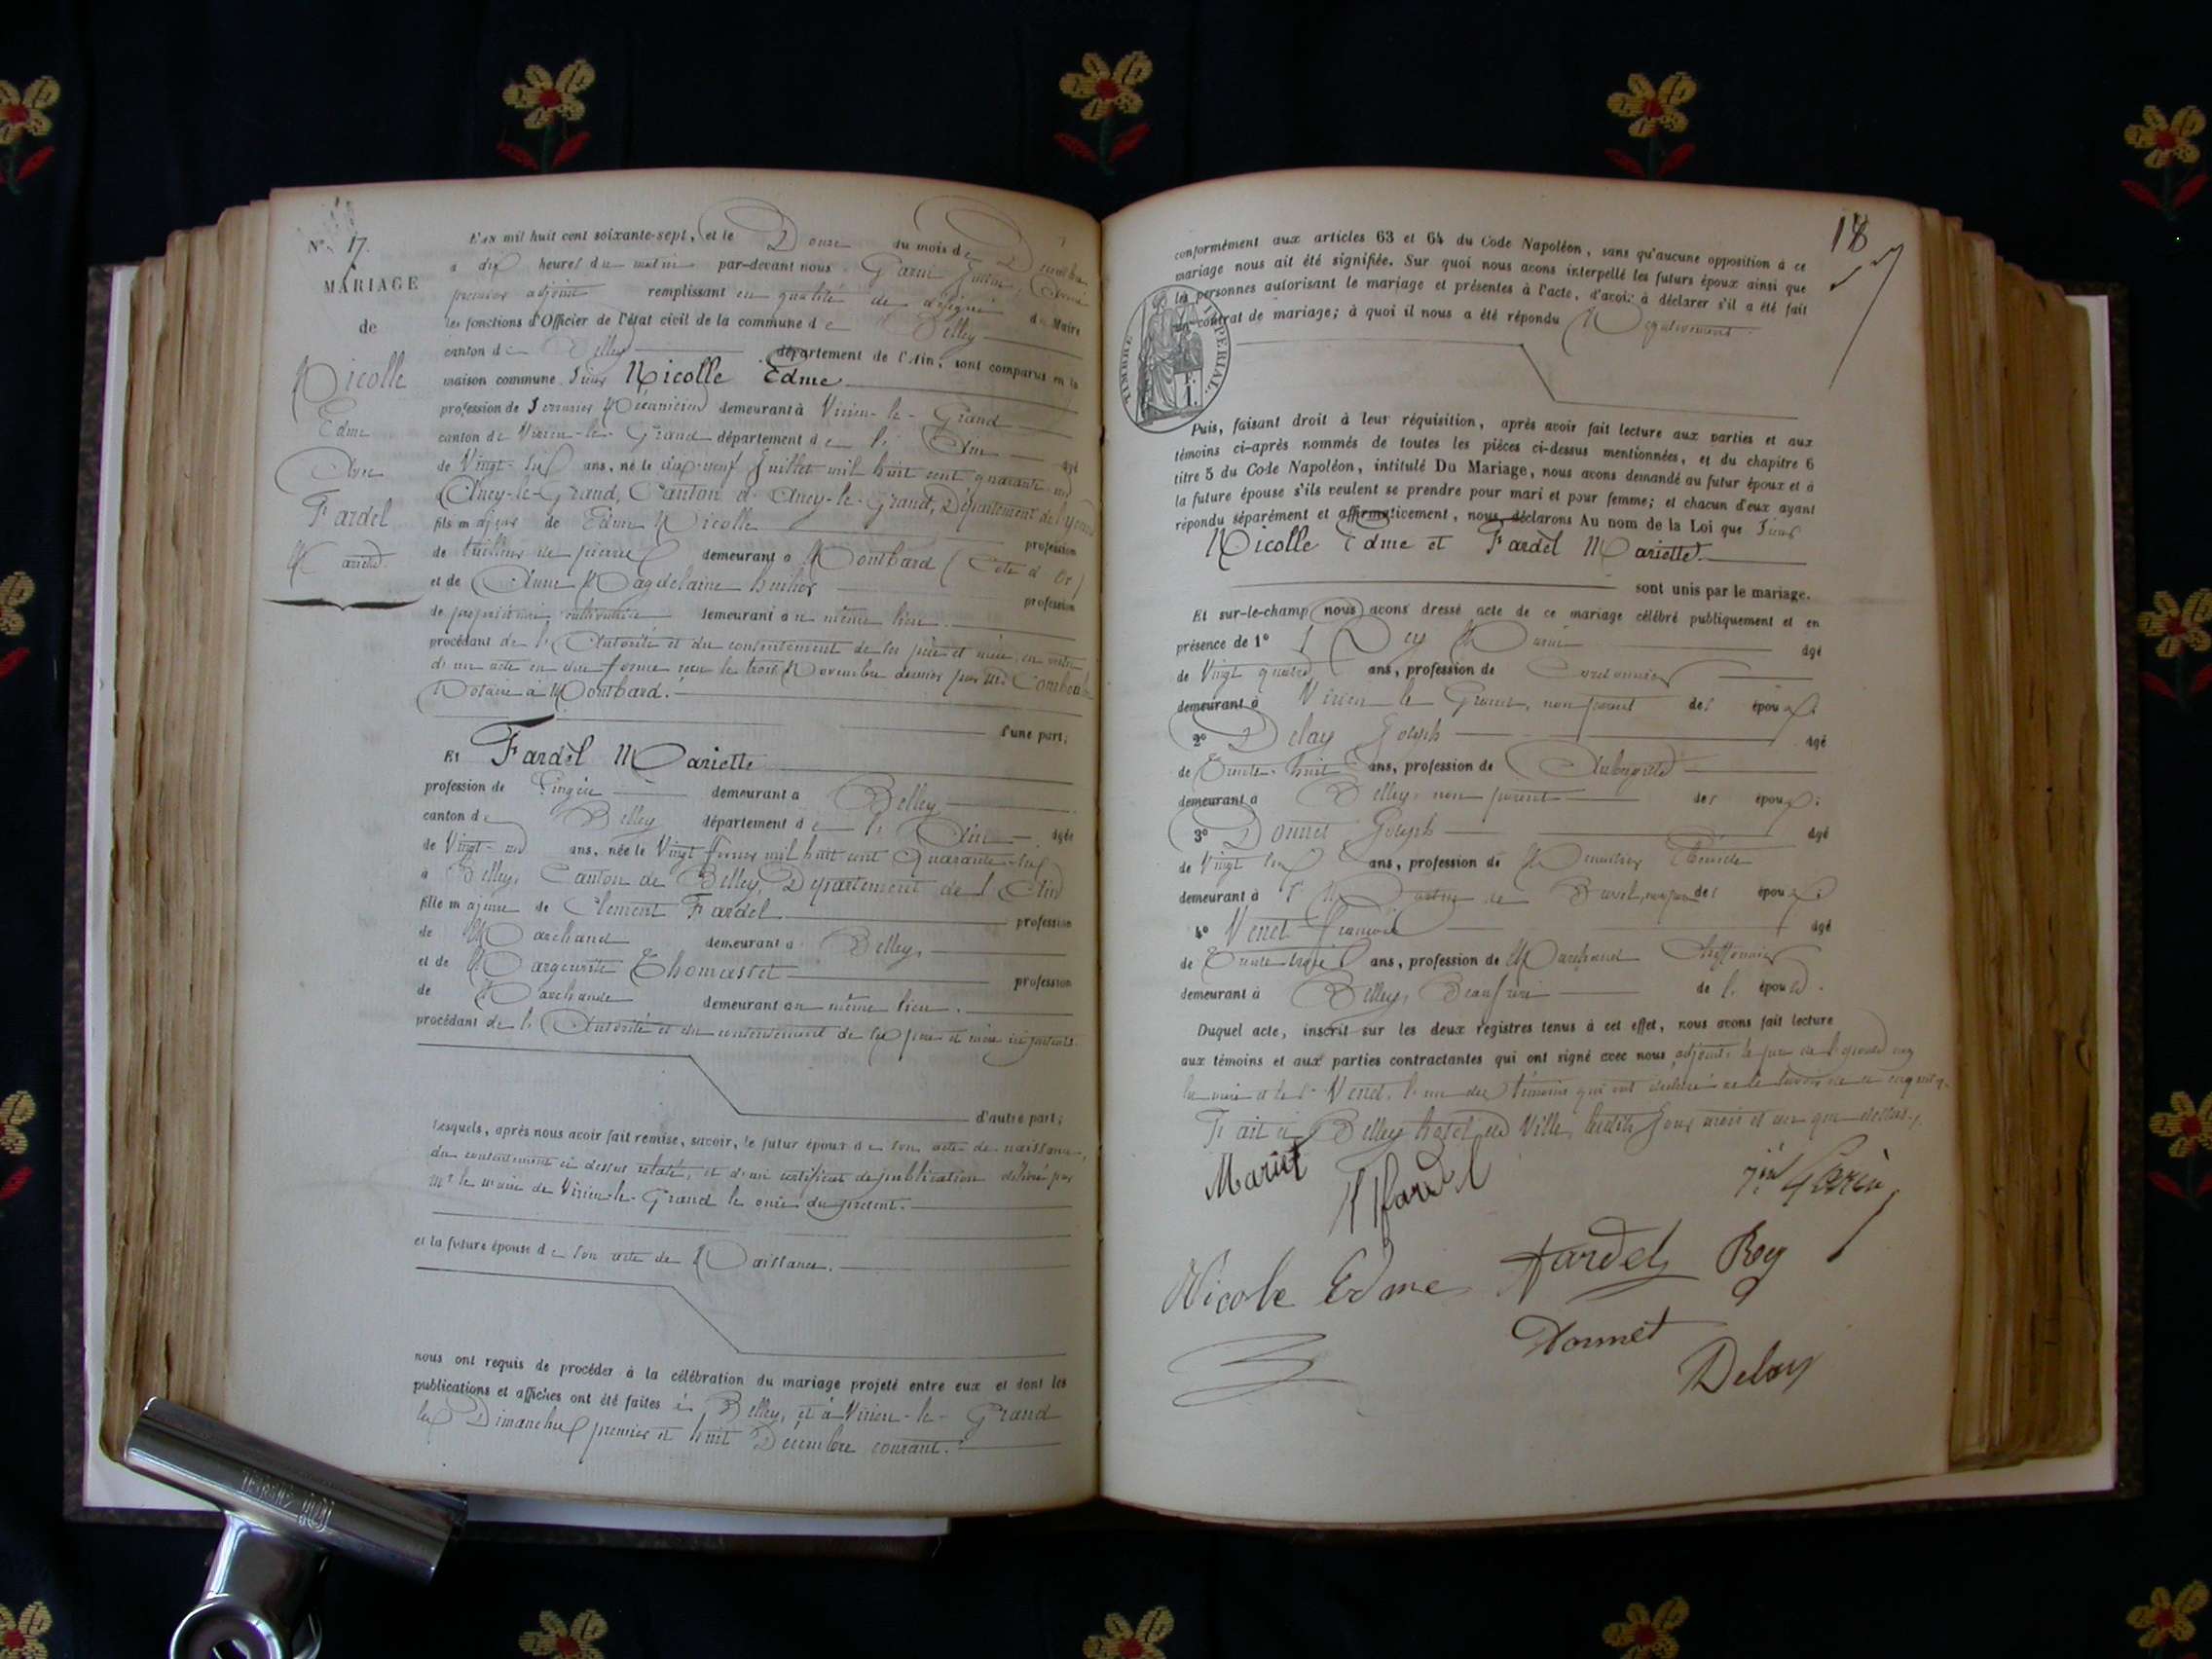 N° 17.
MARIAGE
de
Nicolle
Edme
Avec
Fardel
Mariette.
L'an mil huit cent soixante-sept, et le Douze du mois de Décembre
à dix heures du matin par-devant nous Garin
premier adjoint remplissant en qualité de délégué du Maire
les fonctions d'Officier de l'état civil de la commune de Belley
canton de Belley département de l'Ain, sont comparus en la
maison commune Sieur Nicolle Edme
profession de Serrurier Mécanicien demeurant à Virieu-le-Grand
canton de Virieu-le-Grand département de l'Ain âgé
de Vingt-six ans, né le dix-neuf Juillet mil huit cent quarante un
Ancy-le-Grand, Canton d'Ancy-le-Grand, Département de l'Yonne
fils majeur de Edme Nicolle profession
de tailleur de pierres demeurant à Montbard (Côte d'Or)
et de Anne Magdelaine profession
de propriétaire cultivatrice demeurant au même lieu.
procédant de l'Autorité et du consentement de ses père et mère, en vertu
d'un acte en due forme reçu le trois Novembre dernier par Me
Notaire à Montbard.
d'une part;
Et Fardel Mariette
profession de Lingère demeurant à Belley
canton de Belley département de l'Ain âgée
de Vingt-un ans, née le Vingt Février mil huit cent Quarante-six
à Belley, Canton de Belley, Département de l'Ain
fille majeure de Clément Fardel profession
de Marchand demeurant à Belley,
et de Marguerite Thomasset profession
de Marchande demeurant au même lieu.
procédant de l'Autorité et du consentement de ses père et mère ici présents.
d'autre part;
Lesquels, après nous avoir fait remise, savoir, le futur époux de son acte de naissance,
du consentement ci dessus relaté, et d'un certificat de publication délivré par
Mr le maire de Virieu-le-Grand le onze du présent.
et la future épouse de son acte de Naissance.
nous ont requis de procéder à la célébration du mariage projeté entre eux et dont les
publications et affiches ont été faites à Belley, et à Virieu-le-Grand
les Dimanches premier et huit Décembre courant.
18
conformément aux articles 63 et 64 du Code Napoléon, sans qu'aucune opposition à ce
mariage nous ait été signifiée. Sur quoi nous avons interpellé les futurs époux ainsi que
les personnes autorisant le mariage et présentes à l'acte, d'avoir à déclarer s'il a été fait
un contrat de mariage; à quoi il nous a été répondu Négativement.
TIMBRE IMPERIAL.
Puis, faisant droit à leur réquisition, après avoir fait lecture aux parties et aux
témoins ci-après nommés de toutes les pièces ci-dessus mentionnées, et du chapitre 6
titre 5 du Code Napoléon, intitulé Du Mariage, nous avons demandé au futur époux et à
la future épouse s'ils veulent se prendre pour mari et pour femme; et chacun d'eux ayant
répondu séparément et affirmativement, nous déclarons Au nom de la Loi que Sieur
Nicolle Edme et Fardel Mariette.
sont unis par le mariage.
Et sur-le-champ nous avons dressé acte de ce mariage célébré publiquement et en
présence de 1° Rey Marie âgé
de Vingt quatre ans, profession de Cordonnier
demeurant à Virieu le Grand, non parent des époux.
2° Delay Joseph âgé
de Trente-huit ans, profession de Aubergiste
demeurant à Belley, non parent des époux;
3° Donnet Joseph âgé
de Vingt six ans, profession de Menuisier Ebéniste
demeurant à St Martin de Bavel, non parent des époux;
4° Venet François âgé
de Trente trois ans, profession de Marchand Chiffonnier
demeurant à Belley, Beaufrère de l'épouse.
Duquel acte, inscrit sur les deux registres tenus à cet effet, nous avons fait lecture
aux témoins et aux parties contractantes qui ont signé avec nous adjoint, le père de l'épouse non
la mère et le Sr Venet, l'un des témoins qui ont déclaré ne le savoir de ce enquis.
Fait à Belley hotel de Ville, lesdits Jour mois et an que dessus.
Mariet
Fardel
Garin
Nicole Edme
Fardel
Rey
Donnet
Delay